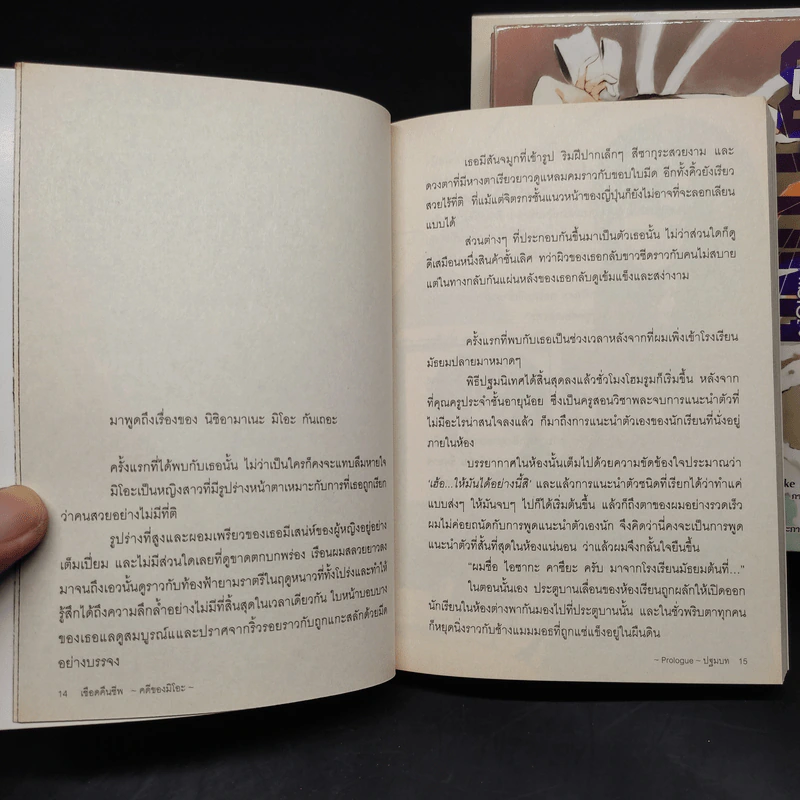 มาพูดถึงเรื่องของ นิชิอามาเนะ มิโอะ กันเถอะ
ครั้งแรกที่ได้พบกับเธอนั้น ไม่ว่าเป็นใครก็คงจะแทบลืมหายใจ
มิโอะเป็นหญิงสาวที่มีรูปร่างหน้าตาเหมาะกับการที่เธอถูกเรียก
ว่าคนสวยอย่างไม่มีที่ติ
รูปร่างที่สูงและผอมเพรียวของเธอมีเสน่ห์ของผู้หญิงอยู่อย่าง
เต็มเปี่ยม และไม่มีส่วนใดเลยที่ดูขาดตกบกพร่อง เรือนผมสลวยยาวลง
มาจนถึงเอวนั้นดูราวกับท้องฟ้ายามราตรีในฤดูหนาวที่ทั้งโปร่งและทำให้
รู้สึกได้ถึงความลึกล้ำอย่างไม่มีที่สิ้นสุดในเวลาเดียวกัน ใบหน้าบอบบาง
ของเธอแลดูสมบูรณ์และปราศจากริ้วรอยราวกับถูกแกะสลักด้วยมีด
อย่างบรรจง
14 เชือดคืนชีพ – คดีของมิโอะ –
เธอมีสันจมูกที่เข้ารูป ริมฝีปากเล็กๆ สีซากุระสวยงาม และ
ดวงตาที่มีหางตาเรียวยาวดูแหลมคมราวกับขอบใบมีด อีกทั้งคิ้วยังเรียว
สวยไร้ที่ติ ที่แม้แต่จิตรกรชั้นแนวหน้าของญี่ปุ่นก็ยังไม่อาจที่จะลอกเลียน
แบบได้
ส่วนต่างๆ ที่ประกอบกันขึ้นมาเป็นตัวเธอนั้น ไม่ว่าส่วนใดก็ดู
ดีเสมือนหนึ่งสินค้าชั้นเลิศ ทว่าผิวของเธอกลับขาวซีดราวกับคนไม่สบาย
แต่ในทางกลับกันแผ่นหลังของเธอกลับดูเข้มแข็งและสง่างาม
ครั้งแรกที่พบกับเธอเป็นช่วงเวลาหลังจากที่ผมเพิ่งเข้าโรงเรียน
มัธยมปลายมาหมาดๆ
พิธีปฐมนิเทศได้สิ้นสุดลงแล้วชั่วโมงโฮมรูมก็เริ่มขึ้น หลังจาก
ที่คุณครูประจำชั้นอายุน้อย ซึ่งเป็นครูสอนวิชาพละจบการแนะนำตัวที่
ไม่มีอะไรน่าสนใจลงแล้ว ก็มาถึงการแนะนำตัวเองของนักเรียนที่นั่งอยู่
ภายในห้อง
บรรยากาศในห้องนั้นเต็มไปด้วยความขัดข้องใจประมาณว่า
'เฮ้อ...ให้มันได้อย่างนี้สิ' และแล้วการแนะนำตัวชนิดที่เรียกได้ว่าทำแค่
แบบส่งๆ ให้มันจบๆ ไปก็ได้เริ่มต้นขึ้น แล้วก็ถึงตาของผมอย่างรวดเร็ว
ผมไม่ค่อยถนัดกับการพูดแนะนำตัวเองนัก จึงคิดว่านี่คงจะเป็นการพูด
แนะนำตัวที่สั้นที่สุดในห้องแน่นอน ว่าแล้วผมจึงกลั้นใจยืนขึ้น
"ผมชื่อ ไอซากะ คาซึยะ ครับ มาจากโรงเรียนมัธยมต้นที่..."
ในตอนนั้นเอง ประตูบานเลื่อนของห้องเรียนถูกผลักให้เปิดออก
นักเรียนในห้องต่างพากันมองไปที่ประตูบานนั้น และในชั่วพริบตาทุกคน
ก็หยุดนิ่งราวกับช้างแมมมอธที่ถูกแช่แข็งอยู่ในผืนดิน
– Prologue – ปฐมบท 15